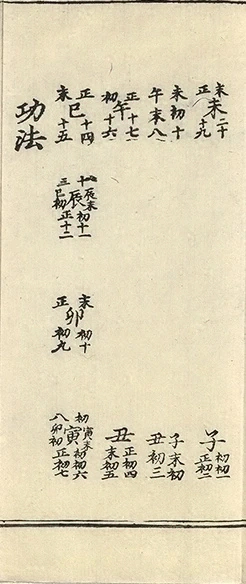 未二十
未
正十九
未初十
午末八
正十七
午
初十六
正十四
巳
末十五
辰末初十一
辰
巳初正十二
末初十
卯
正初九
子初初一
正初二
子末初
丑初三
丑正初四
末初五
初寅末初初六
寅
八卯初正初七
功法